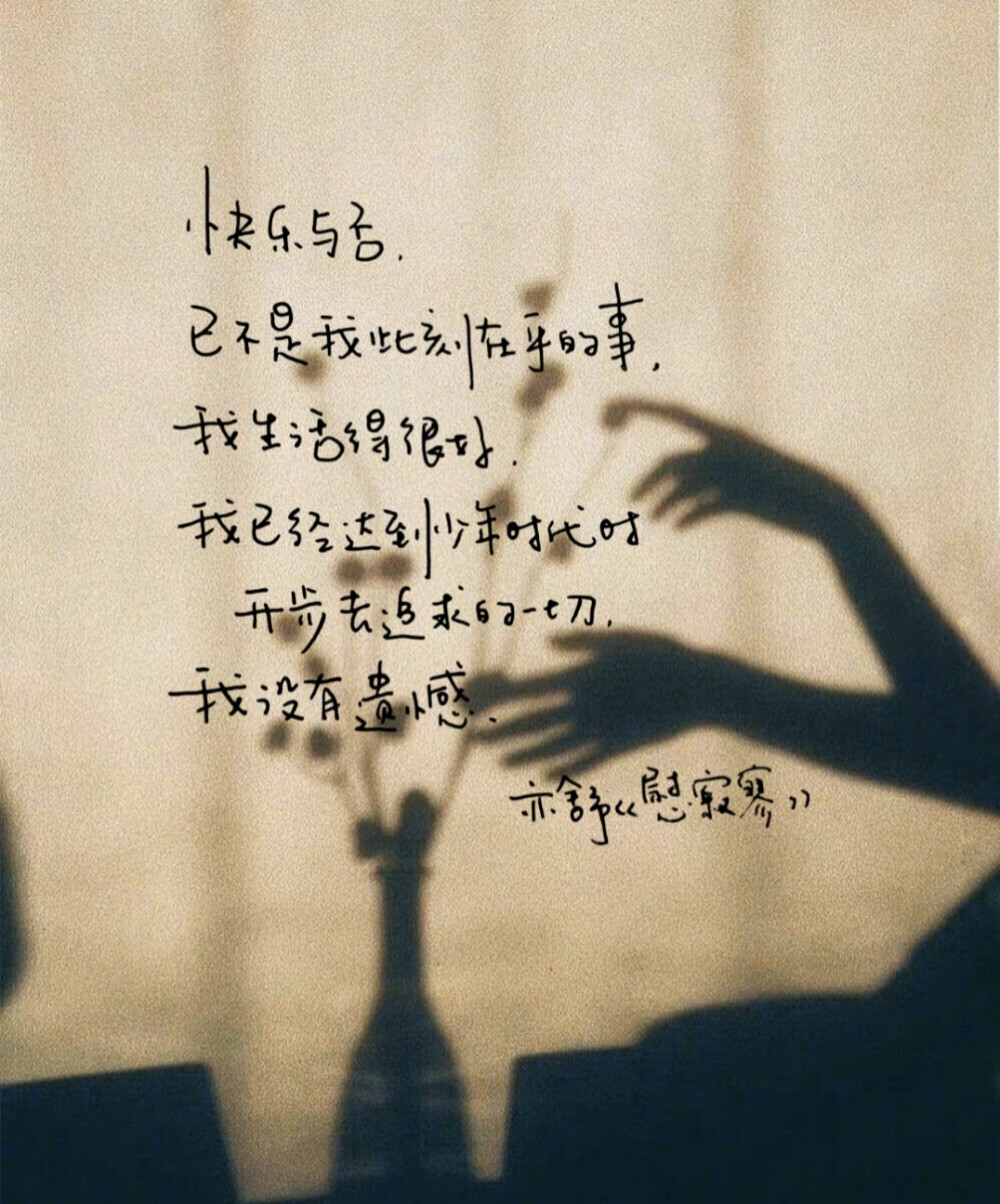 快乐与否.
已不是我此刻在乎的事,
我生活得很好.
我已经达到少年时代时
开步去追求的一切,
我没有遗憾.
亦舒《慰寂寥》